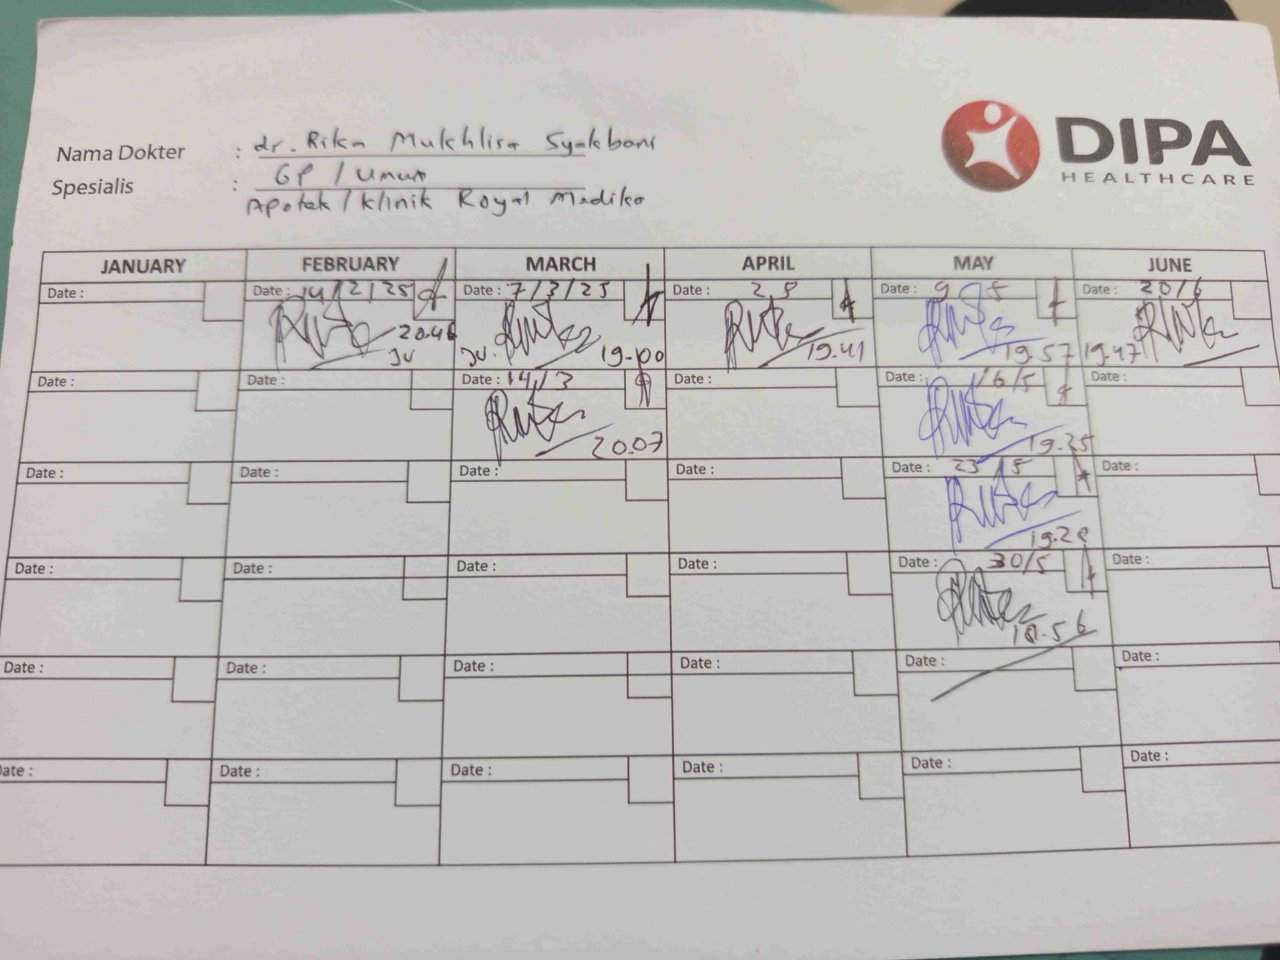 DIPA
HEALTHCARE
Nama Dokter : dr. Rika Mukhlisa Syakbani
Spesialis : GP / Umum
Apotek / Klinik Royal Madika
JANUARY FEBRUARY MARCH APRIL MAY JUNE
Date : Date : 14/2/25 Date : 7/3/25 Date : 25 Date : 9 5 Date : 20/6
20.46 19.00 19.41 19.57 19.47
Date : Date : Date : 14/3 Date : Date : 16/5 Date :
20.07 19.25
Date : Date : Date : Date : Date : 23/5 Date :
19.28
Date : Date : Date : Date : Date : 30/5 Date :
18.56
Date : Date : Date : Date : Date : Date :
Date : Date : Date : Date : Date : Date :